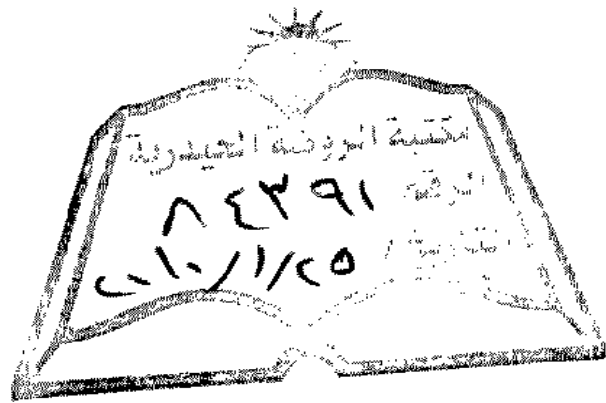 مكتبة الروضة الحيدرية
الرقم ٨٤٣٩١
التاريخ ٢٠١٠/١/٢٥